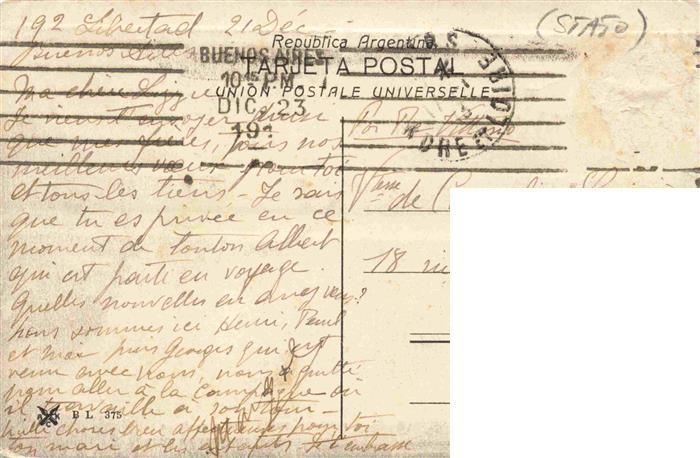 192 Libertad 21 Déc
Buenos Aires
(STATO)
Republica Argentina
TARJETA POSTAL
UNION POSTALE UNIVERSELLE
BUENOS AIRES
10 PM
DIC 23
191
Ma chère
Je viens t'envoyer, ainsi
que mes frères, tous nos
meilleurs vœux pour toi
et tous les tiens - Je sais
que tu es privée en ce
moment de tonton Albert
qui est parti en voyage.
Quelles nouvelles en avez vous?
nous sommes ici Henri, Paul
et Max puis Georges qui est
venu avec nous, nous a quitté
pour aller à la campagne où
il travaille
choses bien affectueuses pour toi
ton mari et les enfants Je t'embrasse
B L 375
Vtesse
de
18